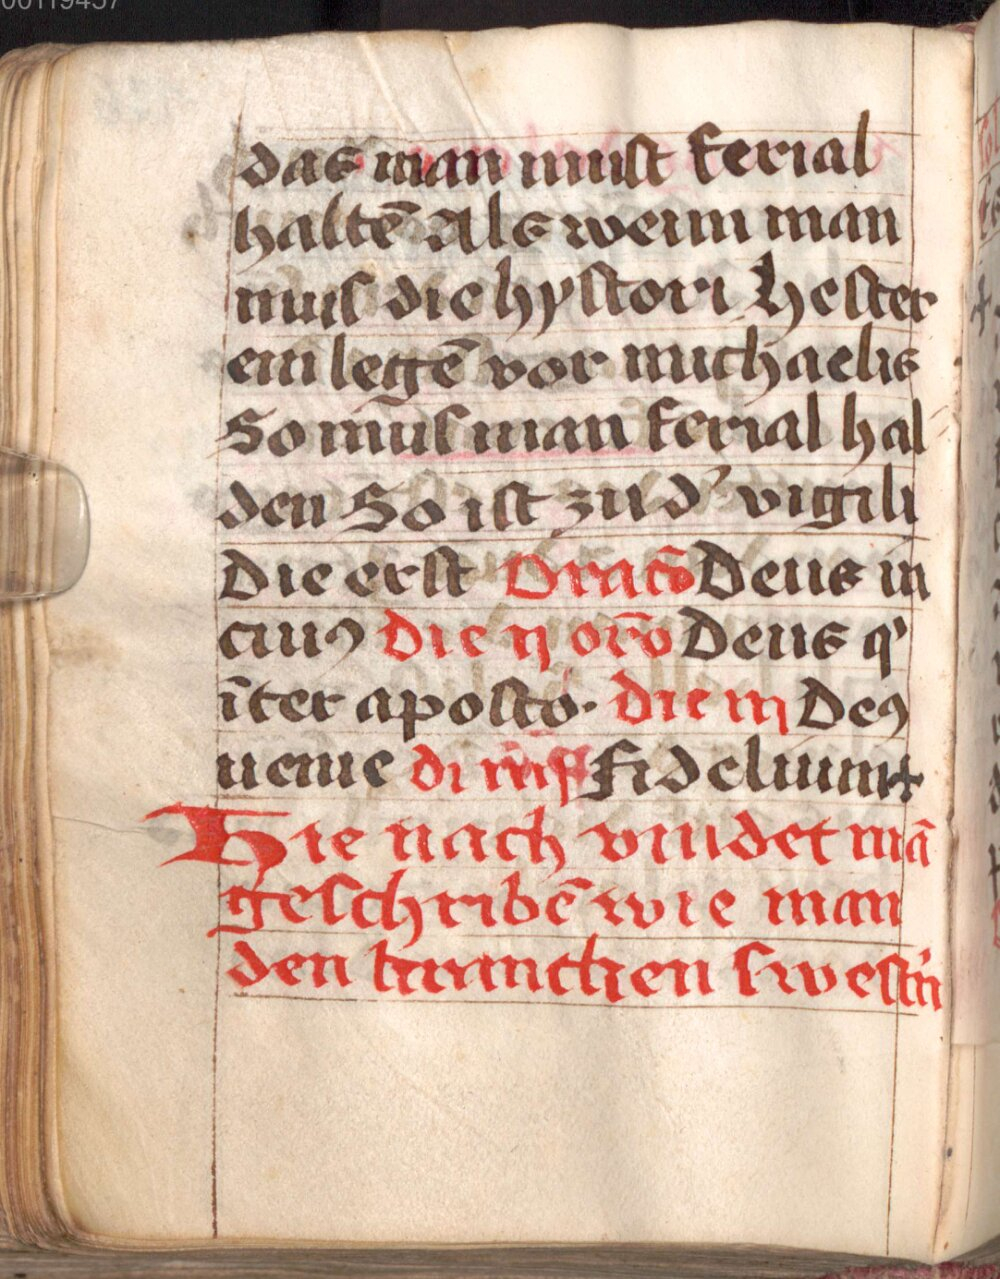 00119437
das man muist ferial
haltē Als wenn man
muis die hystori Hester
ein legē vor michaelis
So mus man ferial hal
den So ist zu d' vigili
Die erst Oracō Deus in
cuiꝰ Die ij orō Deus q'
īter aposto. die iij Deꝰ
uenie di Fidelium +
Hie nach vindet mā
geschribē wie man
den swest'n